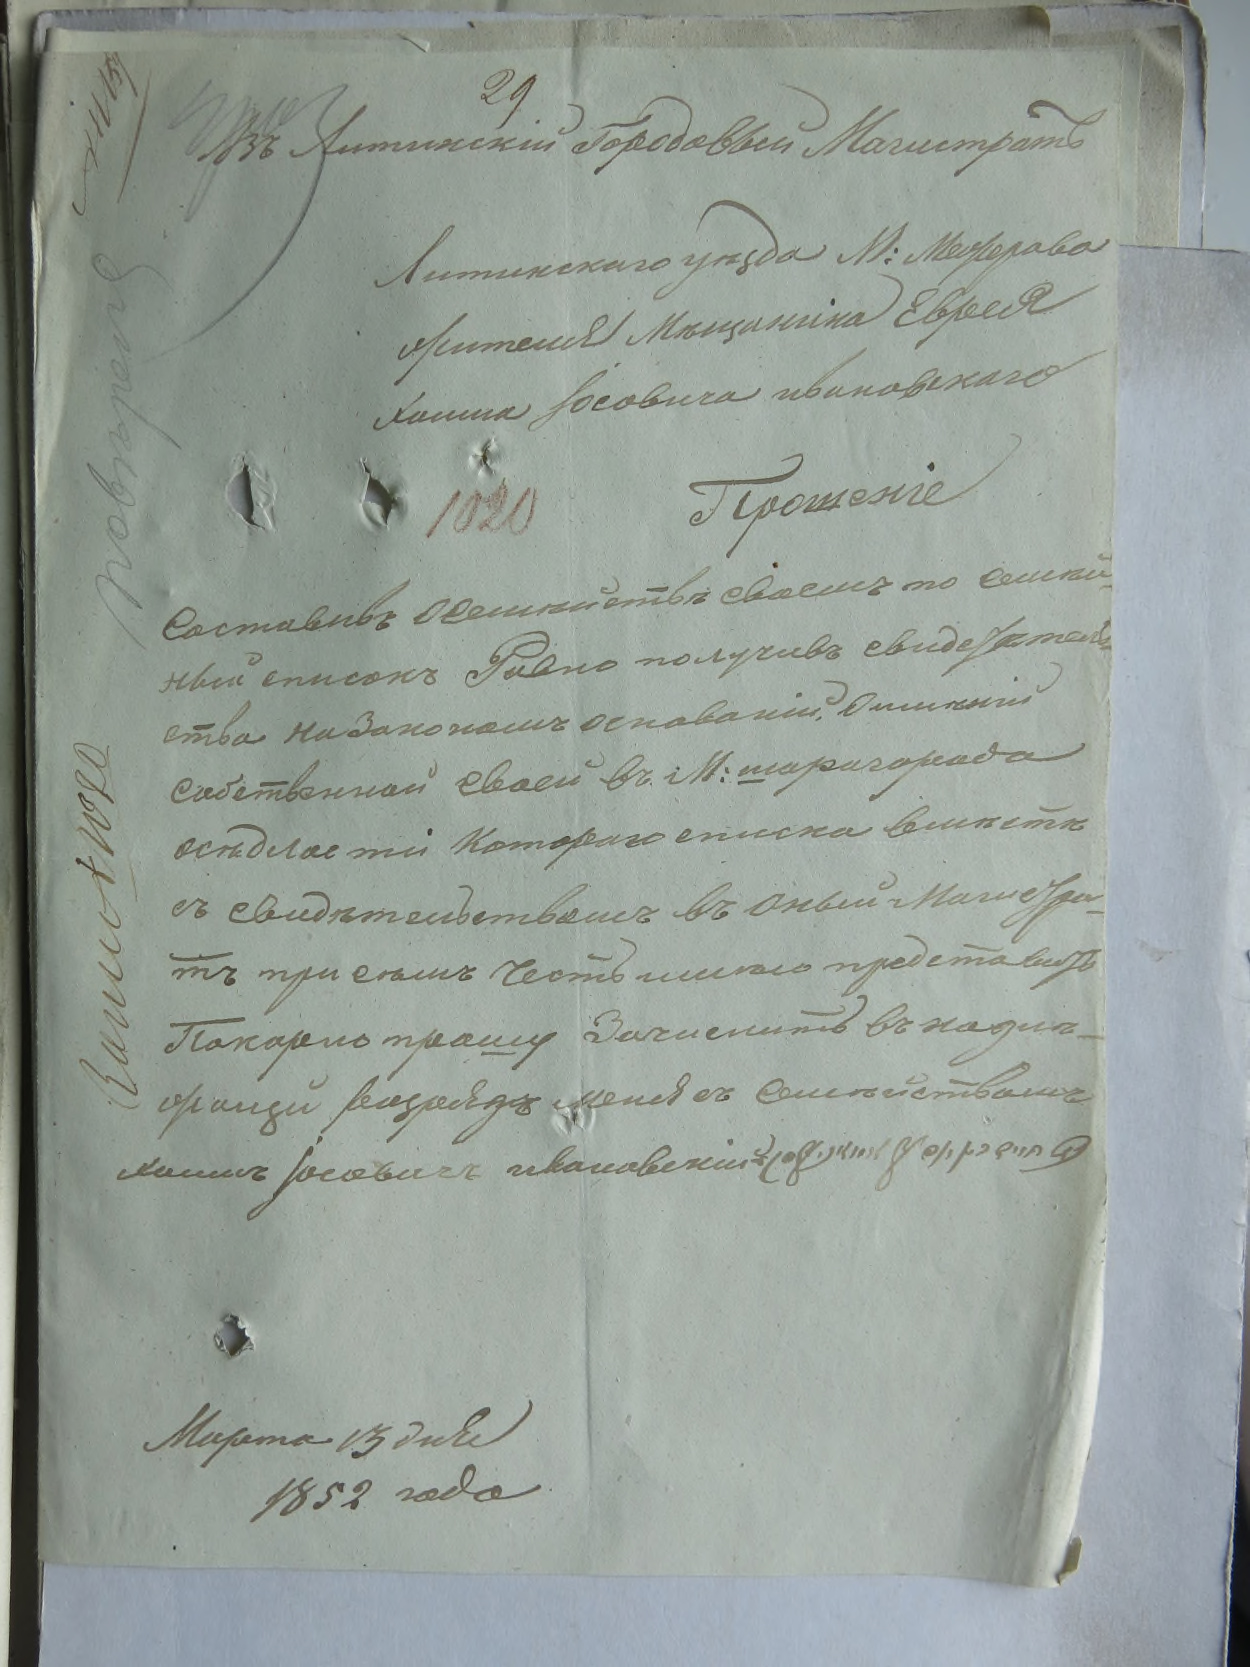 29
Въ Литинскій Городовый Магистратъ
Литинскаго уѣзда М: Межерова
жителя Мѣщанина Еврея
Хаима Іосовича ивановскаго
1020
Прошеніе
Составивъ Осемѣйствѣ своемъ по семѣй-
ный списокъ Равно получивъ свидѣтель-
ства на Закономъ основаніи,
собственной своей въ М: шарагорода
осѣдлости Котораго списка вмѣстѣ
съ свидѣтельствомъ въ Оный Магистра-
тъ при семъ Честь имѣю представить
Покорно прошу Зачислить въ надлѣ-
жащи розрядъ меня съ Семѣйствомъ
Хаимъ Іосовичъ ивановскій
Марта 13 дня
1852 года
повѣрена
1020